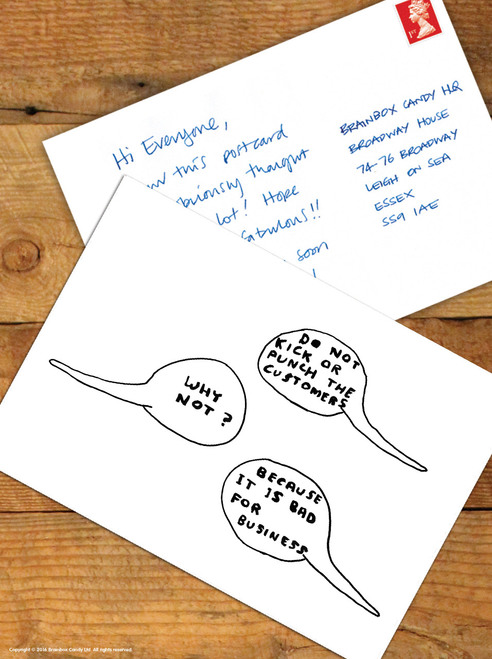 Hi Everyone,
this postcard
thought
lot! Hope
soon
BRAINBOX CANDY HQ
BROADWAY HOUSE
74-76 BROADWAY
LEIGH ON SEA
ESSEX
SS9 1AE
1ST
DO NOT
KICK OR
PUNCH THE
CUSTOMERS
WHY
NOT?
BECAUSE
IT IS BAD
FOR
BUSINESS
Copyright © 2016 Brainbox Candy Ltd. All rights reserved.